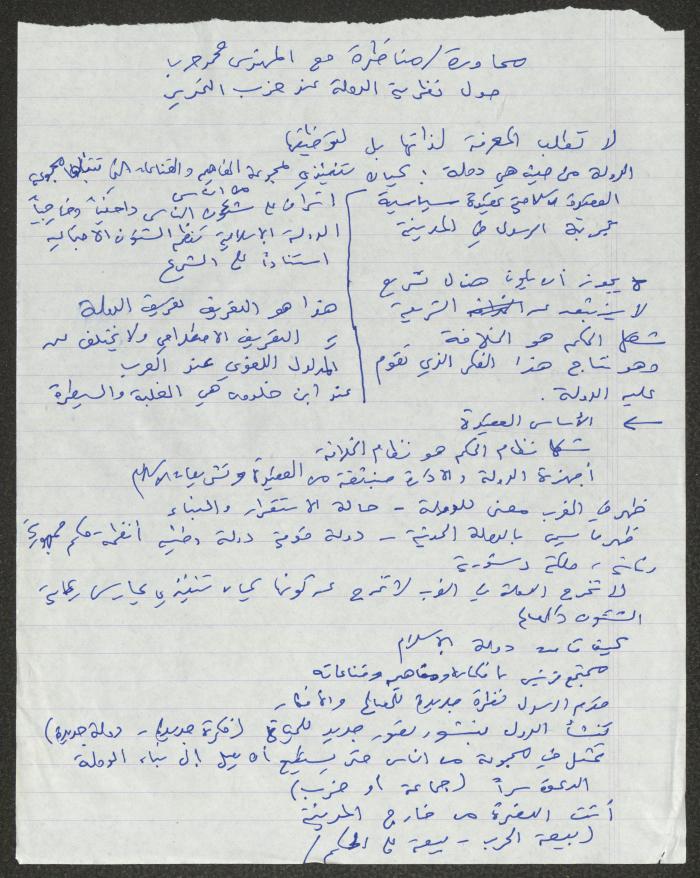 محاورة/مناظرة مع المهندس محمد حرب
حول نظرية الدولة عند حزب التحرير
لا تطلب المعرفة لذاتها بل لتوظيفها
الدولة من حيث هي دولة: كيان تنفيذي لمجموعة المفاهيم والقناعات التي تتقبلها مجموعة
من الناس
العقيدة الإسلامية عقيدة سياسية
تجربة الرسول في المدينة
لا يجوز أن يكون هناك تشريع
لا ينبثق عن الشريعة
شكل الحكم هو الخلافة
وهو نتاج هذا الفكر الذي تقوم
عليه الدولة.
إشراف على شؤون الناس داخلياً وخارجياً
الدولة الإسلامية تنظم الشؤون الاجتماعية
استناداً على الشرع
هذا هو التعريف لتعريف الدولة
التعريف الاصطلاحي ولا يختلف عن
المدلول اللغوي عند العرب
عند ابن خلدون هي الغلبة والسيطرة
← الأساس العقيدة
شكل نظام الحكم هو نظام الخلافة
أجهزة الدولة والإدارة منبثقة من العقيدة وتشريعات الإسلام
ظهر في الغرب معنى للدولة - حالة الاستقرار والبناء
ظهر ما سمي بالدولة المدنية - دولة قومية دولة وطنية أنظمة حكم جمهورية
رئاسية، ملكية دستورية
لا تخرج الدولة في الغرب عن كونها كيان تنفيذي يمارس رعاية
الشؤون والمصالح
كيف قامت دولة الإسلام
مجتمع قريش بأفكاره ومفاهيمه وقناعاته
قدم الرسول نظرة جديدة للمصالح والأفكار
تنشأ الدول بنشوء تصور جديد للحياة (فكرة جديدة - دولة جديدة)
تتمثل في مجموعة من الناس حتى يستطيع أن يصل إلى بناء الدولة
الدعوة سراً (جماعة أو حزب)
أتت النصرة من خارج المدينة
(بيعة الحرب - بيعة على الحكم)